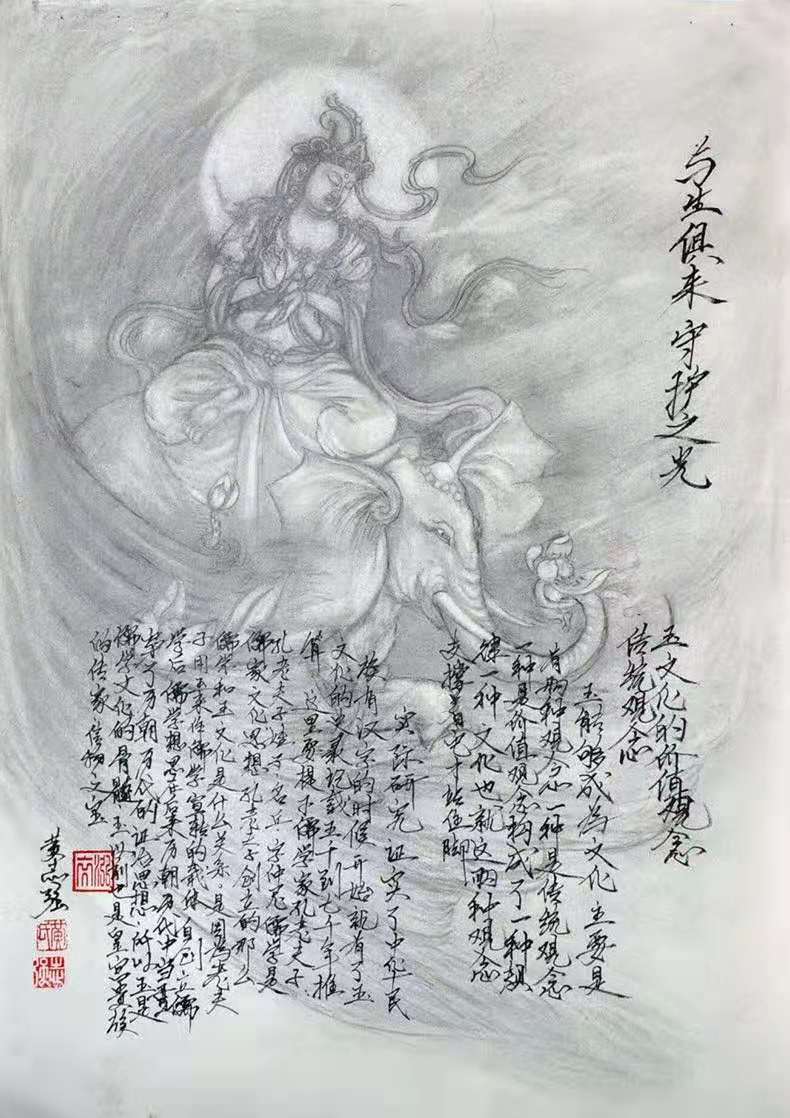 与生俱来 守护之光
玉文化的价值观念
传统观念
玉能够成为文化主要是
有两种观念一种是传统观念
一种是价值观念构成了一种规
律一种文化也就这两种观念
支撑着它才站住脚
实际研究证实了中华民
族有汉字的时候开始就有了玉
文化的史录记载五千到七千年推
算 这里要提下儒学家孔老夫子
孔老夫子姓子名丘字仲尼儒学是
儒家文化思想孔老夫子创立的那么
儒学和玉文化是什么关系是因为老夫
子用玉来作儒学宣扬的载体自己立儒
学后儒学思想后来历朝历代中当
了历朝历代的证治思想所以玉是
儒学文化的骨髓玉以前也是皇宫贵族
的传家信物之宝
黄志强